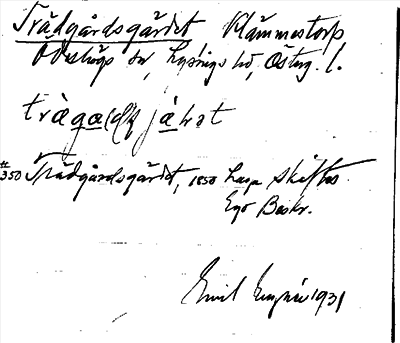 Trädgårdsgärdet Klämmestorp
Ödeshögs sn, Lysings hd, Österg. l.
#350 Trädgårdsgärdet, 1850 Laga skiftes
Ego Beskr.
Emil 1931